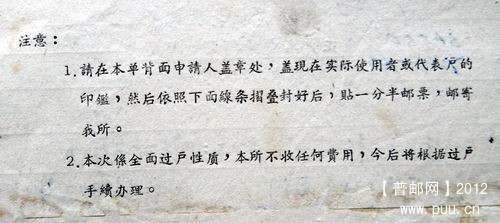 注意：
1.請在本单背面申請人盖章处，盖現在实际使用者或代表户的
印鑑，然后依照下面線条摺叠封好后，貼一分半邮票，邮寄
我所。
2.本次係全面过户性质，本所不收任何費用，今后将根据过户
手續办理。
【普邮网】2012
www.puu.cn